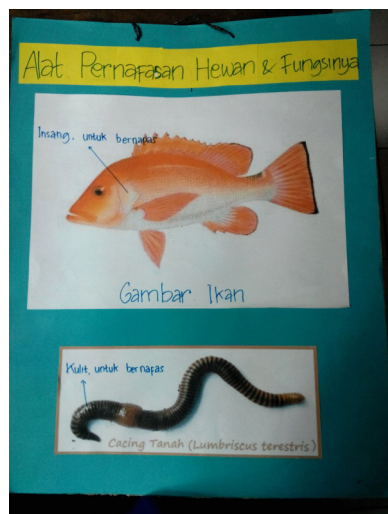 Alat Pernafasan Hewan & Fungsinya
Insang, untuk bernapas
Gambar Ikan
Kulit, untuk bernafas
Cacing Tanah (Lumbriscus terestris)